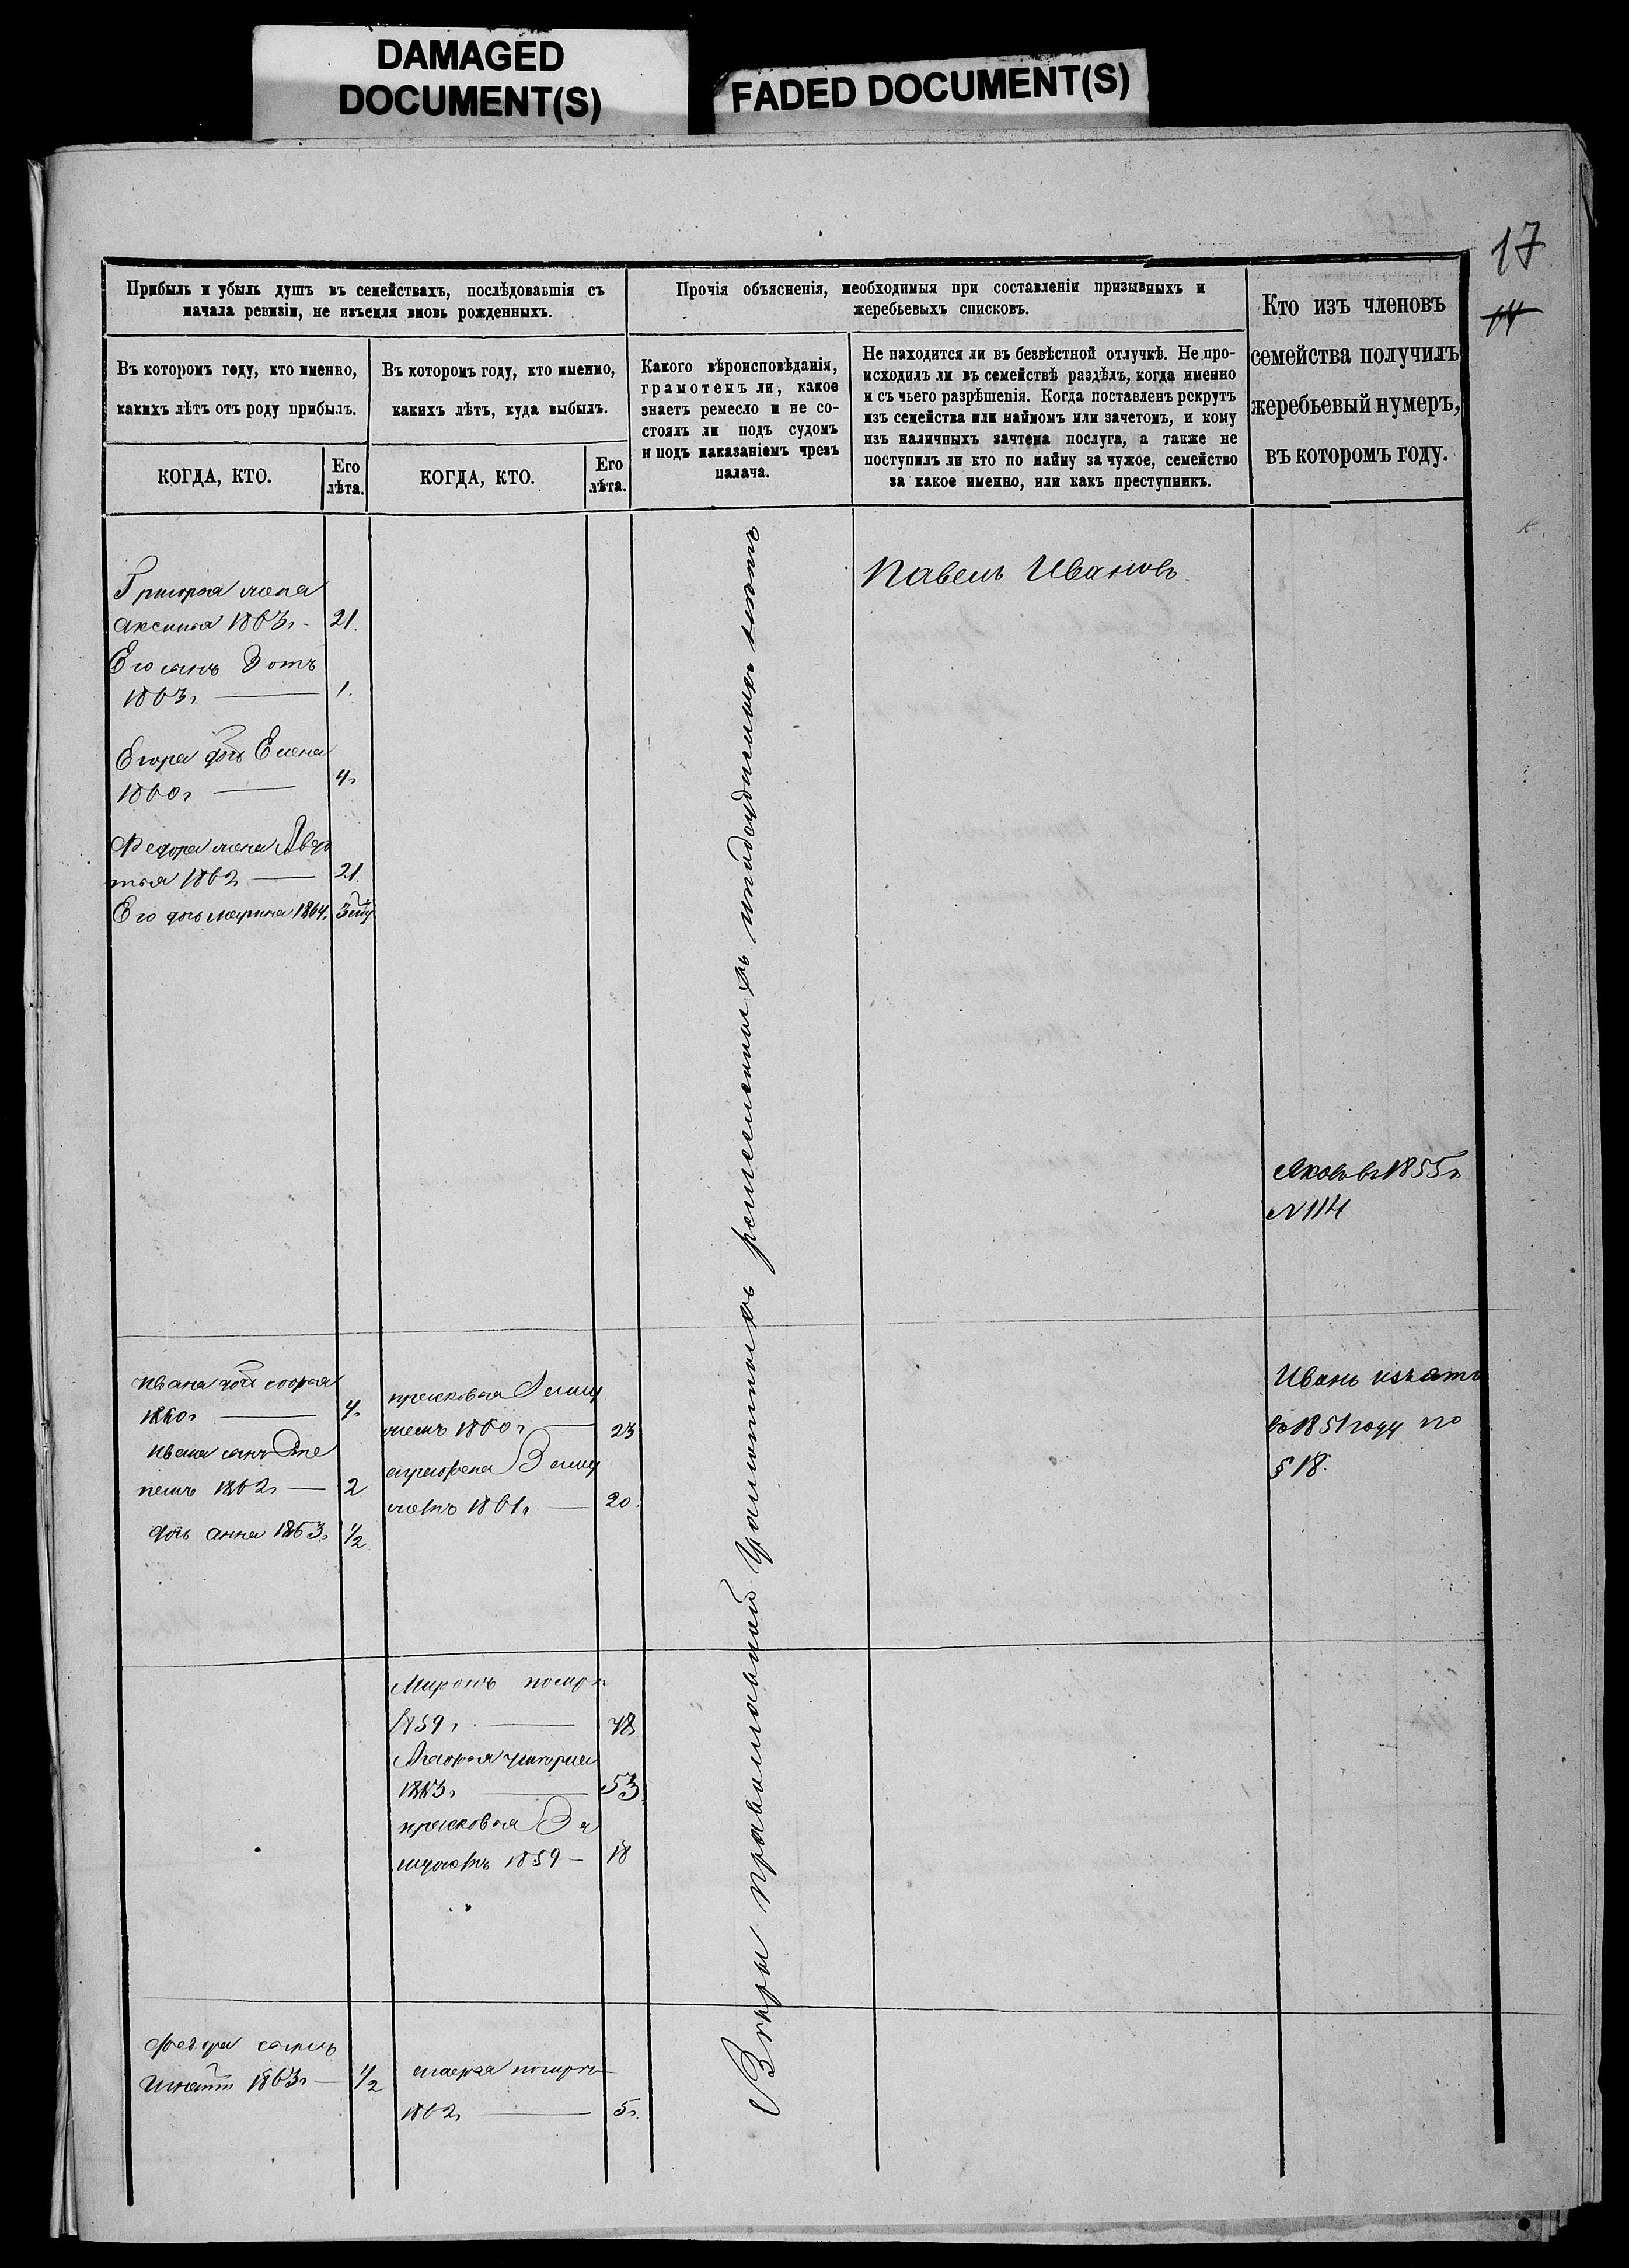 DAMAGED
DOCUMENT(S)
FADED DOCUMENT(S)
17
14
Прибыль и убыль душъ въ семействахъ, послѣдовавшія съ
начала ревизіи, не изъемля вновь рожденныхъ.
Въ которомъ году, кто именно,
какихъ лѣтъ отъ роду прибылъ.
КОГДА, КТО.
Его
лѣта.
Въ которомъ году, кто именно,
какихъ лѣтъ, куда выбылъ.
КОГДА, КТО.
Его
лѣта.
Прочія объясненія, необходимыя при составленіи призывныхъ и
жеребьевыхъ списковъ.
Какого вѣроисповѣданія,
грамотенъ ли, какое
знаетъ ремесло и не со-
стоялъ ли подъ судомъ
и подъ наказаніемъ чрезъ
палача.
Не находится ли въ безвѣстной отлучкѣ. Не про-
исходилъ ли въ семействѣ раздѣлъ, когда именно
и съ чьего разрѣшенія. Когда поставленъ рекрутъ
изъ семейства или наймомъ или зачетомъ, и кому
изъ наличныхъ зачтена послуга, а также не
поступилъ ли кто по найму за чужое, семейство
за какое именно, или какъ преступникъ.
Кто изъ членовъ
семейства получилъ
жеребьевый нумеръ,
въ которомъ году.
Григорья жена
Аксинья 1863г 21.
Его сынъ Зотъ
1863г 1.
Егора дочь Елена
1860г 4г
Федора жена Авдо
тья 1862 21.
Его дочь Марина 1864г
Павелъ Ивановъ.
Вѣры православной Грамотныхъ ремесленныхъ и подсудимыхъ нетъ
Яковъ в 1855г
N 114
Ивана дочь Софья
1860г 4г
Ивана сынъ Сте
панъ 1862г 2
дочь Анна 1863г 1/2
Прасковья Взаму
жемъ 1860г 23
Взаму
жемъ 1861г 20.
Иванъ изъятъ
въ 1851 году по
§ 18.
Миронъ померъ
1859г 48
Агафья умерла
1863г 53
Прасковья За
мужемъ 1859 18
Федора сынъ
Игнатъ 1863г 1/2
Марья померла
1862 5г.